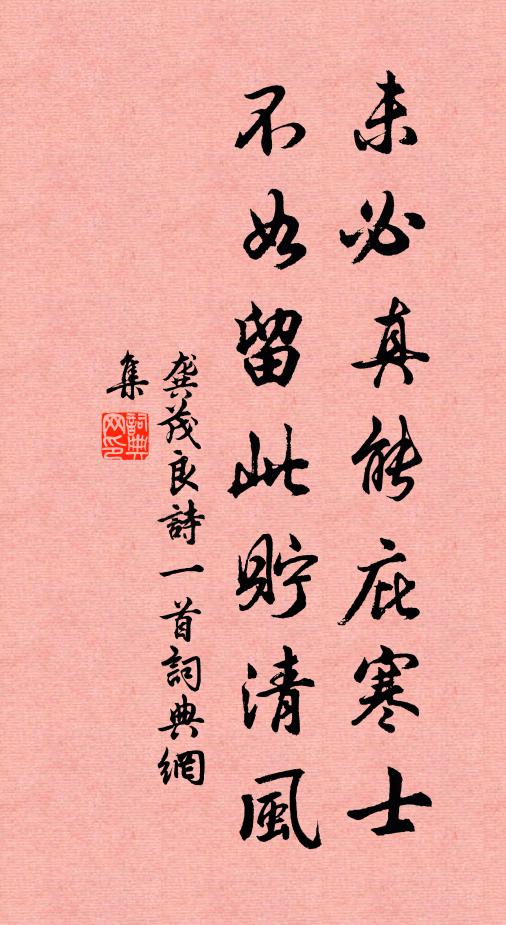 未必真能庇寒士
不如留此貯清風
龔茂良詩一首詞典網
集
詞典
网印